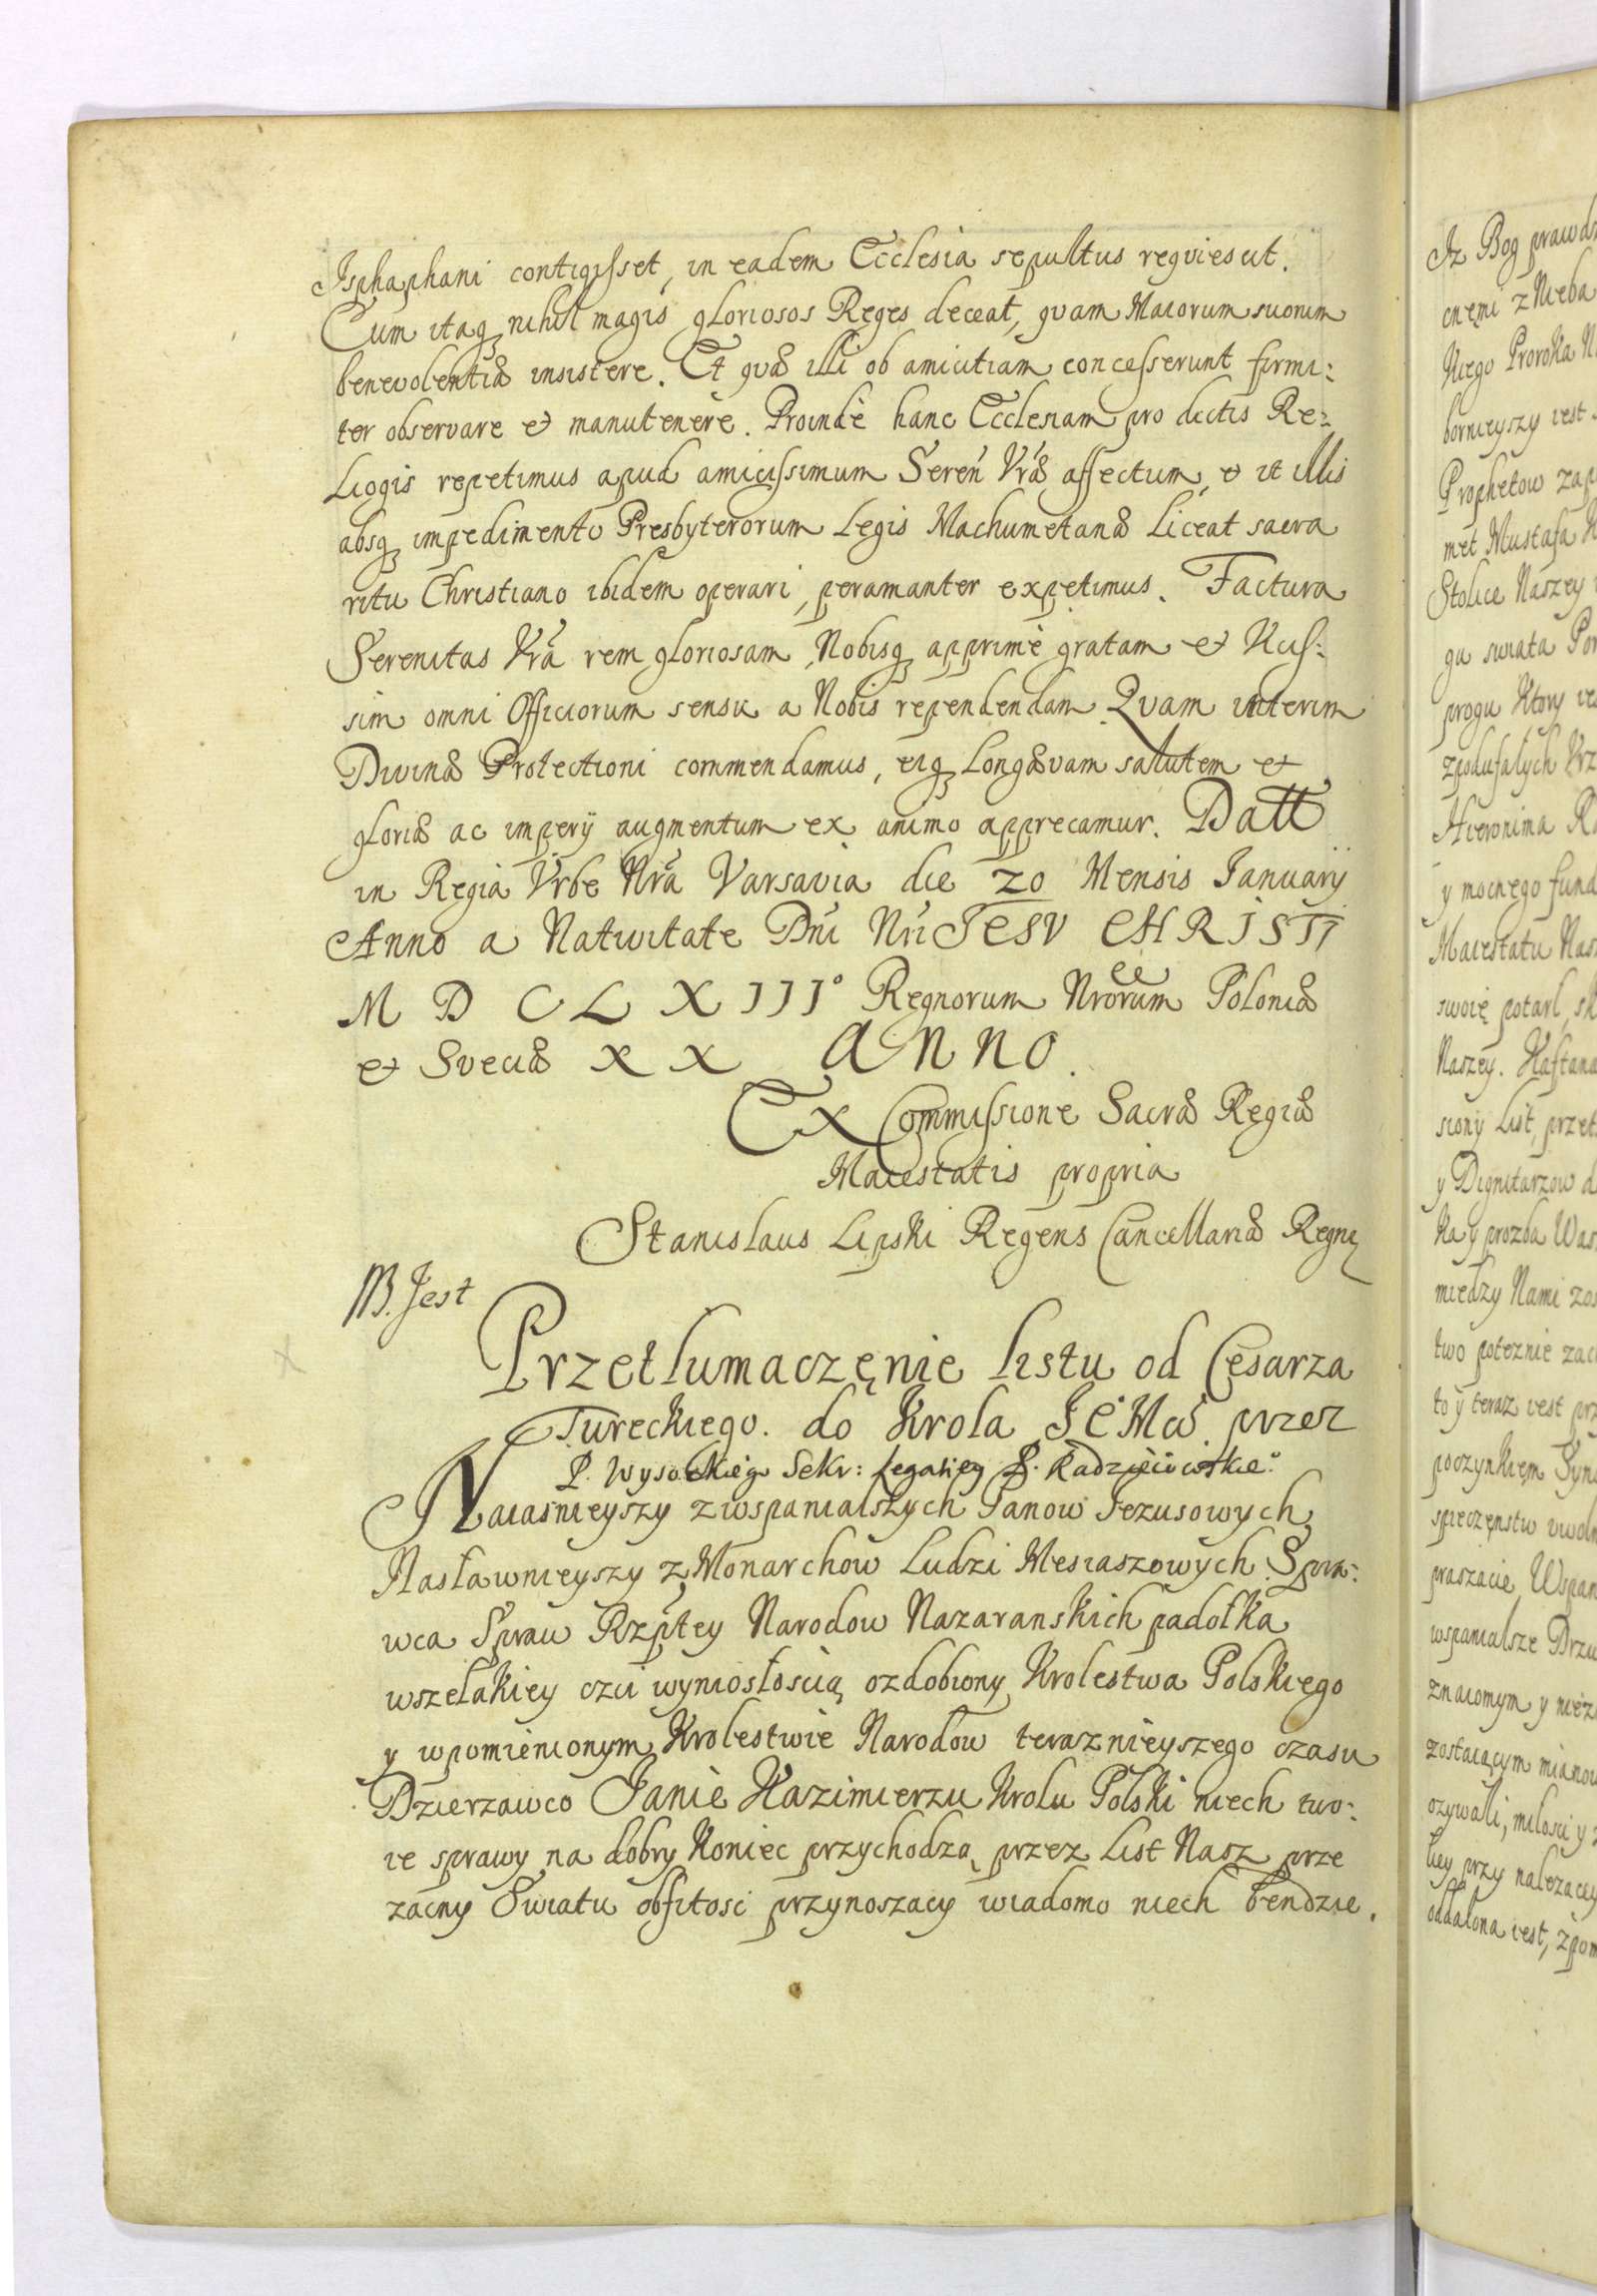 Isphaphani contigisset, in eadem Ecclesia sepultus reqviescit.
Cum itaq nihil magis gloriosos Reges deceat, qvam Maiorum suorum
benevolentiæ insistere. Et qvæ illi ob amicitiam concesserunt firmi:
ter observare et manutenere. Proinde hanc Ecclesiam pro dictis Re:
ligijs repetimus apud amicissimum Seren Vræ affectum, et ut illis
absq impedimento Presbyterorum Legis Machumetanæ Liceat sacra
ritu Christiano ibidem operari, peramanter expetimus. Factura
Serenitas Vra rem gloriosam, Nobisq apprime gratam et
sim omni Officiorum sensu a Nobis rependendam Qvam interim
Divinæ Protectioni commendamus, eiq Longævam salutem et
gloriæ ac imperij augmentum ex animo apprecamur. Datt
in Regia Vrbe Nra Varsavia die 20 Mensis Ianuarij
Anno a Nativitate Dni Nri IESV CHRISTI
M D C L X III° Regnorum Nrorum Poloniæ
et Sveciæ X X ANNO.
Ex Commissione Sacræ Regiæ
Maiestatis propria
Stanislaus Lipski Regens Cancellariæ Regni
NB. Jest
Przetlumaczęnie listu od Cesarza
Tureckiego. do Krola JEMci przez
P. Wysockiego Sekr: Legatiey P. Radzieiowskie°
Naiasnieyszy z wspanialszych Panow Jezusowych
Nasławnieyszy z Monarchow Ludzi Mesiaszowych Spra:
wca Spraw Rzptey Narodow Nazaranskich padołka
wszelakiey czci wyniosłoscią ozdobiony Krolestwa Polskiego
y wpomienionym Krolestwie Narodow terasznieyszego czasu
Dzierzawco Janie Kazimierzu Krolu Polski niech two:
ie sprawy na dobry Koniec przychodzą przez List Nasz prze
zacny Swiatu obfitosc przynoszacy wiadomo niech bendzie.
Iz Bog
z Nieba
Kiego Proroka
borniejszy iest
Prophetow
met Mustafa
Stolice Naszey
gu swiata
progu Ktory
Hieronima
y mocnego
Maiestatu
swoię potarl,
Naszey.
siony List,
y Dignitarzow
Ka y prozba
miedzy Nami
two poteznie
to y teraz iest
poczynkiem
praszacie,
wspanialsze
znaiomym y
zostaiącym
ozywali, milosci y
przy nalezacey
oddalona iest,